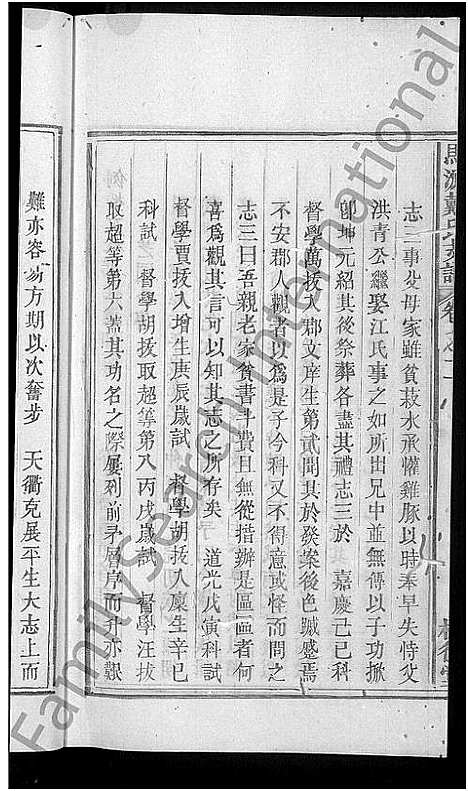 志三事父母家雖貧菽水承懽雞豚以時奉早失恃父
洪青公繼娶江氏事之如所出兄中並無傳以子功掀
郎坤元紹其後祭葬各盡其禮志三於 嘉慶己巳科
督學萬拔入郡文庠生第貳聞其於發案後色蹴蹙焉
不安郡人觀者以為是子今科又不得意或怪而問之
志三曰吾親老家貧書斗費且無從措辦是區區者何
喜為觀其言可以知其志之所存矣 道光戊寅科試
督學賈拔入增生庚辰歲試 督學胡拔入廩生辛巳
科試 督學胡拔取超等第八丙戌歲試 督學汪拔
取超等第六蓋其功名之際屢列前矛層序而升亦艱
難亦容易方期以次奮步 天衢克展平生大志上而
FamilySearch International